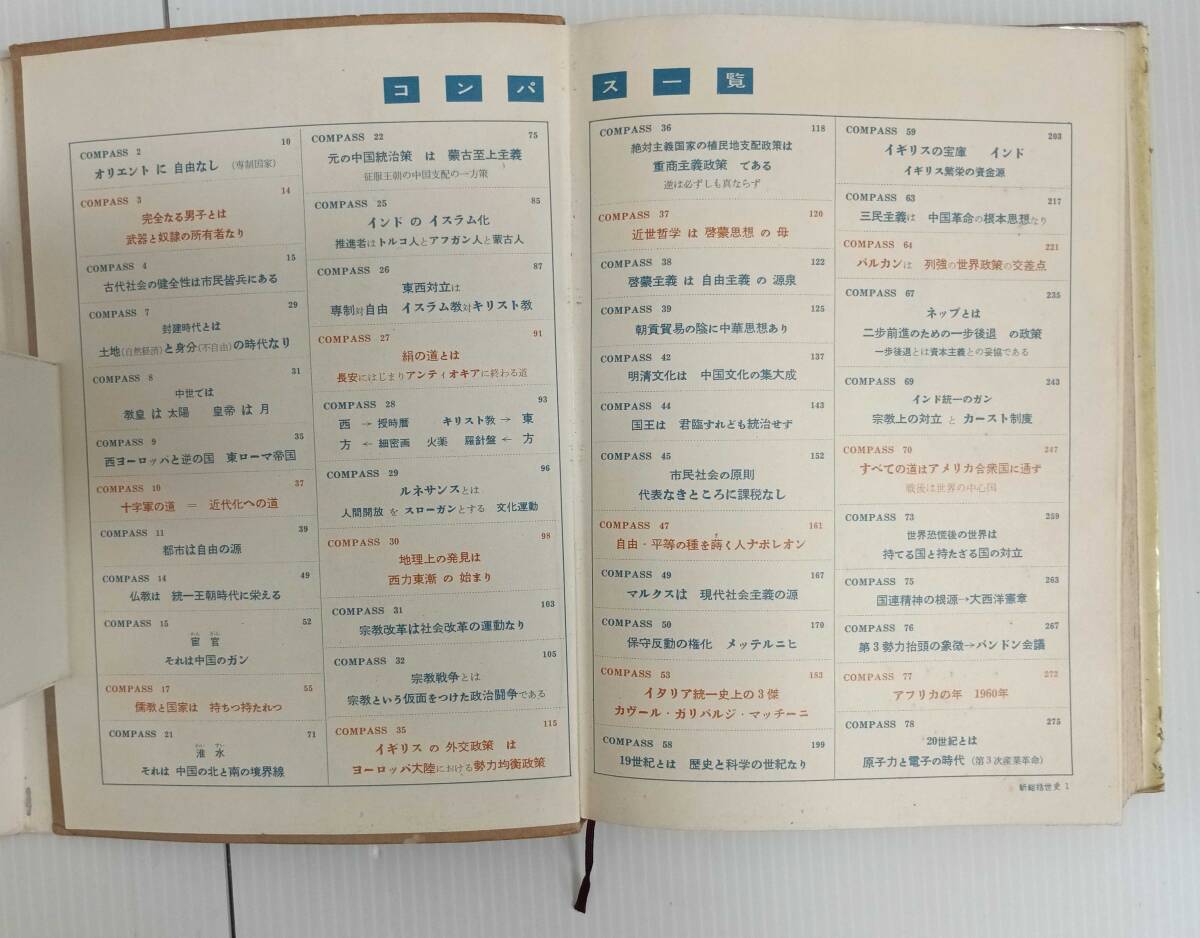 コンパス一覧
COMPASS 2 10
オリエント に 自由なし (専制国家)
COMPASS 3 14
完全なる男子とは
武器と奴隷の所有者なり
COMPASS 4 15
古代社会の健全性は市民皆兵にある
COMPASS 7 29
封建時代とは
土地(自然経済)と身分(不自由)の時代なり
COMPASS 8 31
中世では
教皇 は 太陽 皇帝 は 月
COMPASS 9 35
西ヨーロッパと逆の国 東ローマ帝国
COMPASS 10 37
十字軍の道 = 近代化への道
COMPASS 11 39
都市は自由の源
COMPASS 14 49
仏教は 統一王朝時代に栄える
COMPASS 15 52
かん がん
宦 官
それは中国のガン
COMPASS 17 55
儒教と国家は 持ちつ持たれつ
COMPASS 21 71
わい すい
淮 水
それは 中国の北と南の境界線
COMPASS 22 75
元の中国統治策 は 蒙古至上主義
征服王朝の中国支配の一方策
COMPASS 25 85
インド の イスラム化
推進者はトルコ人とアフガン人と蒙古人
COMPASS 26 87
東西対立は
専制対自由 イスラム教対キリスト教
COMPASS 27 91
絹の道とは
長安にはじまりアンティオキアに終わる道
COMPASS 28 93
西 → 授時暦 キリスト教 → 東
方 ← 細密画 火薬 羅針盤 ← 方
COMPASS 29 96
ルネサンスとは
人間開放 を スローガンとする 文化運動
COMPASS 30 98
地理上の発見は
西力東漸 の 始まり
COMPASS 31 103
宗教改革は社会改革の運動なり
COMPASS 32 105
宗教戦争とは
宗教という仮面をつけた政治闘争である
COMPASS 35 115
イギリス の 外交政策 は
ヨーロッパ大陸における勢力均衡政策
COMPASS 36 118
絶対主義国家の植民地支配政策は
重商主義政策 である
逆は必ずしも真ならず
COMPASS 37 120
近世哲学 は 啓蒙思想 の 母
COMPASS 38 122
啓蒙主義 は 自由主義 の 源泉
COMPASS 39 125
朝貢貿易の陰に中華思想あり
COMPASS 42 137
明清文化は 中国文化の集大成
COMPASS 44 143
国王は 君臨すれども統治せず
COMPASS 45 152
市民社会の原則
代表なきところに課税なし
COMPASS 47 161
自由・平等の種を蒔く人ナポレオン
COMPASS 49 167
マルクスは 現代社会主義の源
COMPASS 50 170
保守反動の権化 メッテルニヒ
COMPASS 53 183
イタリア統一史上の3傑
カヴール・ガリバルジ・マッチーニ
COMPASS 58 199
19世紀とは 歴史と科学の世紀なり
COMPASS 59 203
イギリスの宝庫 インド
イギリス繁栄の資金源
COMPASS 63 217
三民主義は 中国革命の根本思想なり
COMPASS 64 221
バルカンは 列強の世界政策の交差点
COMPASS 67 235
ネップとは
二歩前進のための一歩後退 の政策
一歩後退とは資本主義との妥協である
COMPASS 69 243
インド統一のガン
宗教上の対立 と カースト制度
COMPASS 70 247
すべての道はアメリカ合衆国に通ず
戦後は世界の中心国
COMPASS 73 259
世界恐慌後の世界は
持てる国と持たざる国の対立
COMPASS 75 263
国連精神の根源→大西洋憲章
COMPASS 76 267
第3勢力抬頭の象徴→バンドン会議
COMPASS 77 272
アフリカの年 1960年
COMPASS 78 275
20世紀とは
原子力と電子の時代 (第3次産業革命)
新総括世史 1